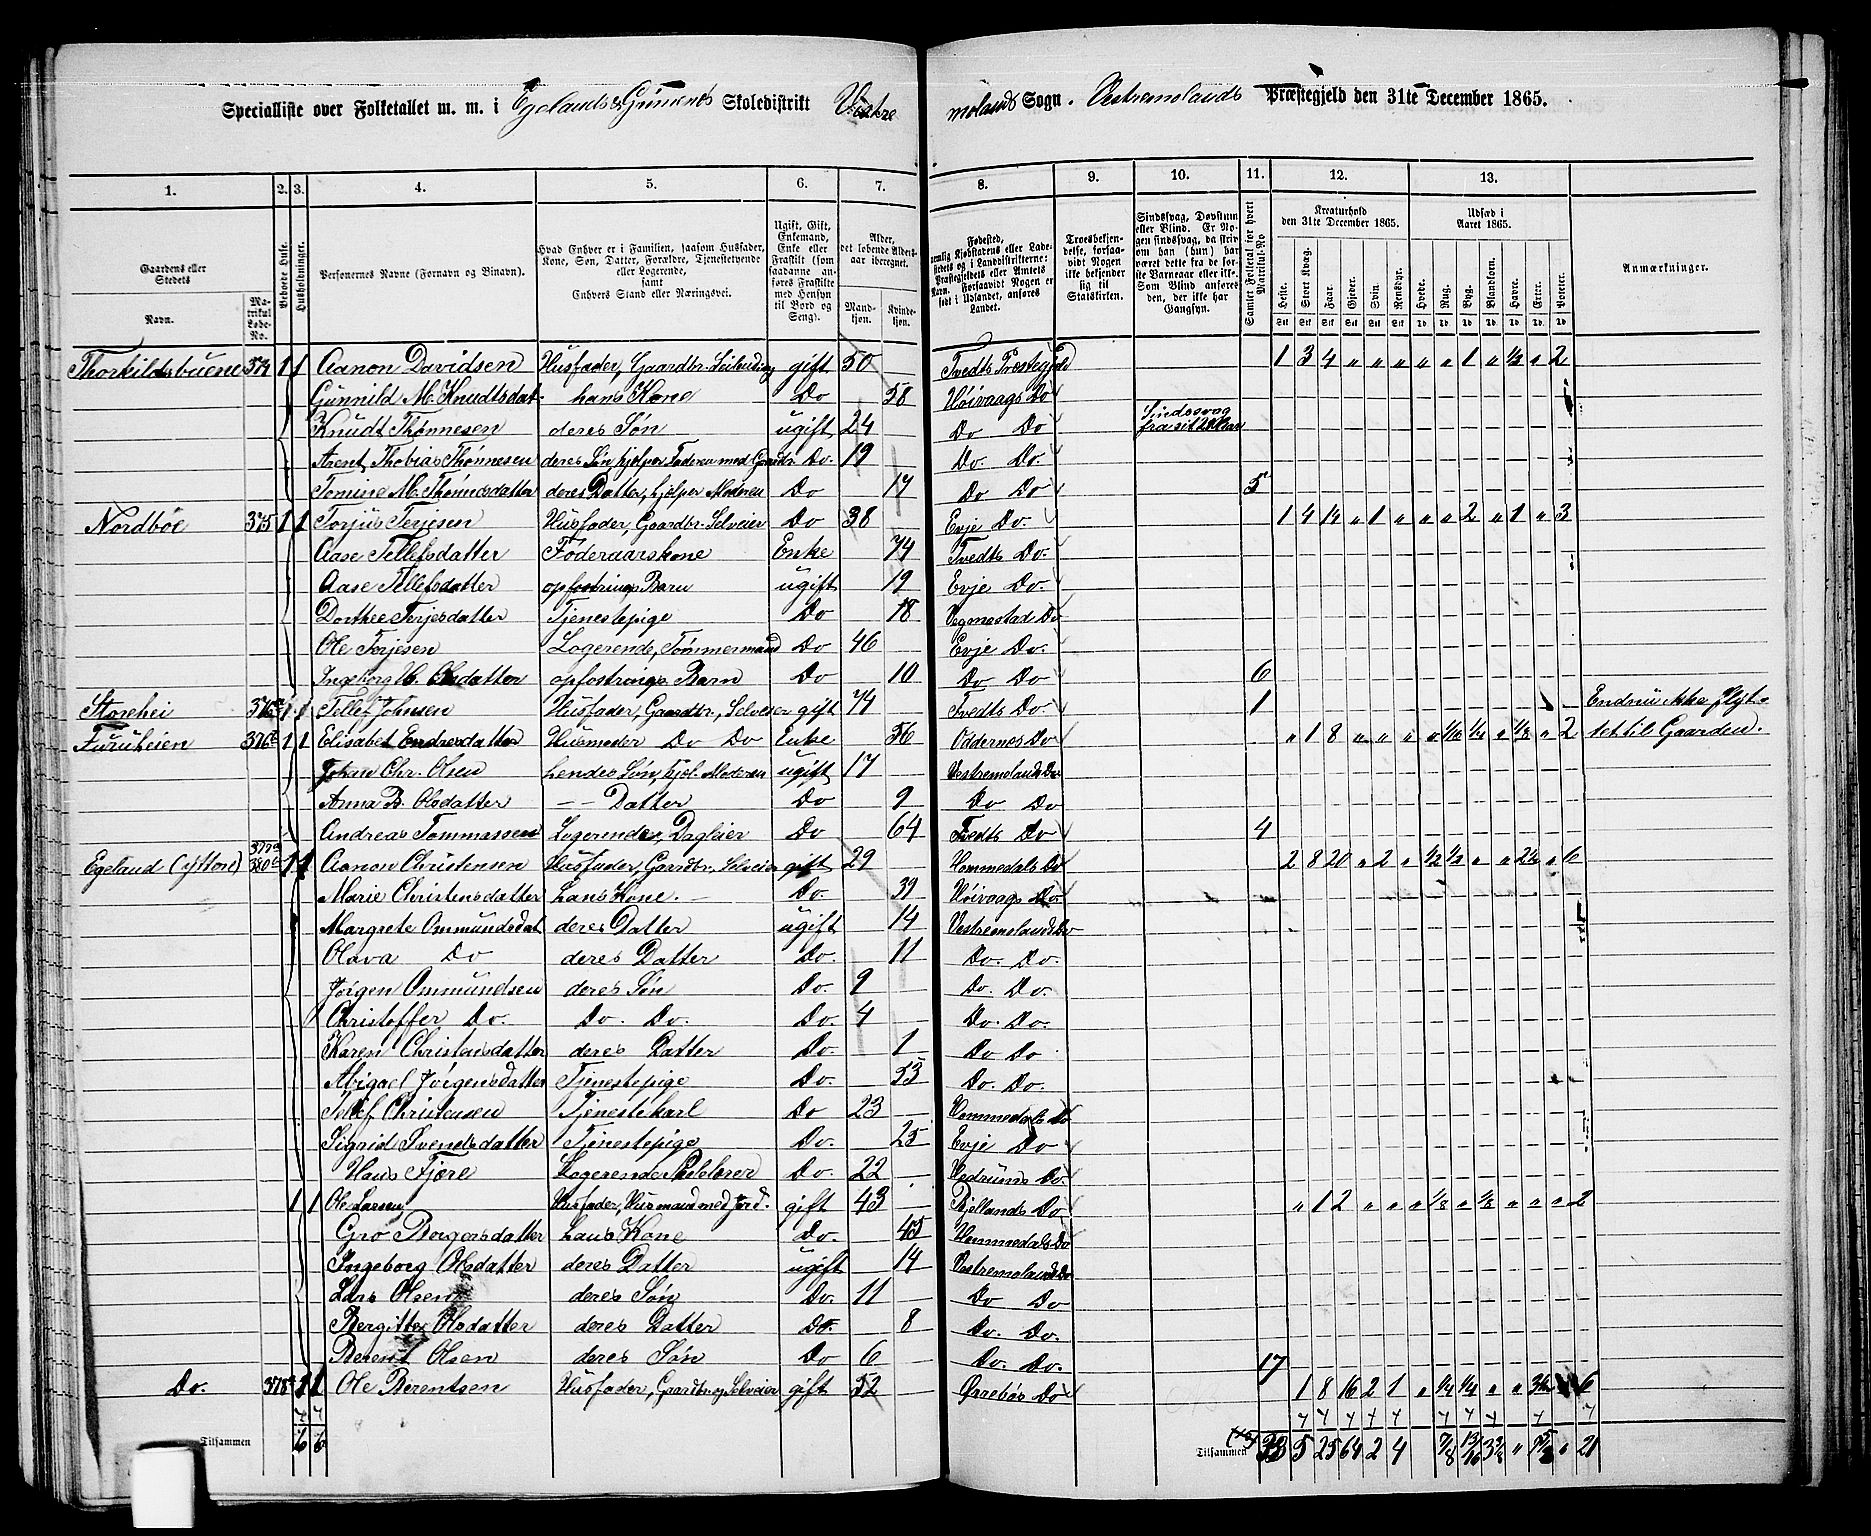 Specialliste over Folketallet m. m. i Egelands & Grimenes Skoledistrikt Vestre molands Sogn. Vestremolands Præstegjeld den 31te December 1865.
1. 2. 3. 4. 5. 6. 7. 8. 9. 10. 11. 12. 13.
Gaardens eller Stedets Navn. Matrikul Løbe-No. Beboede Huse. Husholdninger. Personernes Navne (Fornavn og Binavn). Hvad Enhver er i Familien, saasom Husfader, Kone, Søn, Datter, Forældre, Tjenestetyende eller Logerende, samt Enhvers Stand eller Næringsvei. Ugift, Gift, Enkemand, Enke eller Fraskilt (som saadanne anføres Fraskilte med Hensyn til Bord og Seng). Alder, det løbende Aldersaar iberegnet. Mandkjøn. Kvindekjøn.
Troesbekjendelse, forsaavidt Nogen ikke bekjender sig til Statskirken. Sindssvag, Døvstum eller Blind. Samlet Folketal for hvert Matrikul-No Kreaturhold den 31te December 1865. Udsæd i Aaret 1865. Anmærkninger.
Heste. Stort Kvæg. Faar. Gjeder. Svin. Rensdyr. Hvede. Rug. Byg. Blandkorn. Havre. Erter. Poteter.
Thorkildsbuene 374 1 1 Aanon Davidsen Husfader, Gaardbr. Leilending gift 50 Tvedts Præstegjeld 1 3 4 „ „ „ „ „ 1 „ ½ „ 2
Gunnild M. Knudtsdat. hans Kone Do 58 Høivaags Do
Knudt Thønnesen deres Søn ugift 24 Do Do Sindssvag
Arent Thobias Thønnesen deres Søn, hjelper Faderen med Gaardbr. Do. 19 Do. Do.
Tomine M. Thønnesdatter deres Datter, hjelper Moderen Do 17 Do Do 5
Nordbøe 375 1 1 Torjus Terjesen Husfader, Gaardbr. Selveier Do 38 Evje Do. 1 4 14 „ 1 „ „ „ 2 „ 1 „ 3
Aase Tellefsdatter Føderaadskone Enke 74 Tvedts Do.
Aase Tellefsdatter opfostrings Barn ugift 19 Evje Do.
Dorthee Terjesdatter Tjenestepige Do 18 Vegmestad Do
Ole Terjesen Logerende, Tømmermand Do 46 Evje Do.
Ingeborg H. Olsdatter opfostrings Barn Do 10 Do Do 6
Storehei 376 1 1 Tellef Johnsen Husfader, Gaardbr., Selveier gift 74 Tvedts Do. 1 Endnu ikke flyt-
Furuheien 376 1 1 Elisabet Endresdatter Husmoder Do Do Enke 56 Oddernes Do „ 1 8 „ „ „ „ 1/16 ¼ „ ⅛ „ 2 tet til Gaarden.
Johan Chr. Olsen hendes Søn, hjel. Moderen ugift 17 Vestremolands Do
Anna B. Olsdatter – – Datter Do 9 Do Do
Andreas Tommassen Logerende, Dagleier Do 64 Tvedts Do 4
Egeland (yttre) 377 380 1 1 Aanon Christensen Husfader, Gaardbr., Selveier gift 29 Hommedals Do 2 8 20 „ 2 „ ½ ½ „ „ 2½ „ 6
Marie Christensdatter hans Kone. Do. 39 Høivaags Do.
Margrete Ommundsdat deres Datter ugift 14 Vestremolands Do
Olava Do deres Datter Do. 11 Do. Do.
Jørgen Ommundsen deres Søn Do. 9 Do. Do.
Christoffer Do. Do. Do. Do. 4 Do. Do.
Karen Christensdatter deres Datter Do. 1 Do Do
Abigael Jørgensdatter Tjenestepige Do. 53 Do. Do.
Tellef Christensen Tjenestekarl Do 23 Hommedals Do
Sigrid Svendsdatter Tjenestepige Do. 25 Evje Do
Hans Fjære Logerende Do. 22 Do.
1 1 Ole Larsen Husfader, Husmand med Jord. gift 43 Bjellands Do „ 1 2 „ „ „ „ ⅛ „ ⅛ „ „ „ 2
Gro Borgersdatter hans Kone Do. 45 Hommedals Do
Ingeborg Olsdatter deres Datter ugift 14 Vestremolands Do
Lars Olsen deres Søn Do. 11 Do Do
Bergitte Olsdatter deres Datter Do. 8 Do. Do.
Berent Olsen deres Søn Do 6 Do. Do. 17
Do. 378 1 1 Ole Berentsen Husfader, Gaardbr. og Selveier gift 52 Do 1 8 16 2 1 „ ¼ ¼ „ „ 6
Tilsammen 6 6 Tilsammen 33 5 25 64 2 4 7/8 „ „ 21